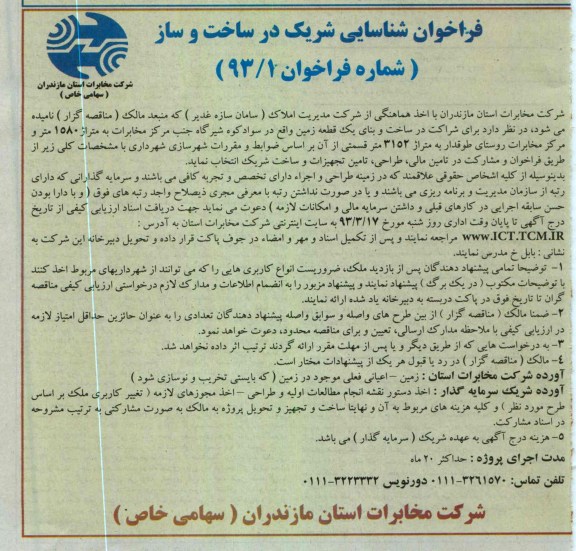 فراخوان شناسایی شریک در ساخت و ساز
( شماره فراخوان ۹۳/۱ )
شرکت مخابرات استان مازندران
( سهامی خاص )
شرکت مخابرات استان مازندران با اخذ هماهنگی از شرکت مدیریت املاک ( سامان سازه غدیر ) که منبعد مالک ( مناقصه گزار ) نامیده
می شود، در نظر دارد برای شراکت در ساخت و بنای یک قطعه زمین واقع در سوادکوه شیرگاه جنب مرکز مخابرات به متراژ ۱۵۸۰ متر و
مرکز مخابرات روستای طوقدار به متراژ ۳۱۵۲ متر قسمتی از آن بر اساس ضوابط و مقررات شهرسازی شهرداری با مشخصات کلی زیر از
طریق فراخوان و مشارکت در تامین مالی، طراحی، تامین تجهیزات و ساخت شریک انتخاب نماید.
بدینوسیله از کلیه اشخاص حقوقی علاقمند که در زمینه طراحی و اجراء دارای تخصص و تجربه کافی می باشند و سرمایه گذارانی که دارای
رتبه از سازمان مدیریت و برنامه ریزی می باشند و یا در صورت نداشتن رتبه با معرفی مجری ذیصلاح واجد رتبه های فوق ( و با دارا بودن
حسن سابقه اجرایی در کارهای قبلی و داشتن سرمایه مالی و امکانات لازمه ) دعوت می نماید جهت دریافت اسناد ارزیابی کیفی از تاریخ
درج آگهی تا پایان وقت اداری روز شنبه مورخ ۹۳/۳/۱۷ به سایت اینترنتی شرکت مخابرات استان به آدرس :
WWW.ICT.TCM.IR مراجعه نمایند و پس از تکمیل اسناد و مهر و امضاء در جوف پاکت قرار داده و تحویل دبیرخانه این شرکت به
نشانی : بابل خ مدرس نمایند.
۱- توضیحا تمامی پیشنهاد دهندگان پس از بازدید ملک، ضروریست انواع کاربری هایی را که می توانند از شهرداریهای مربوط اخذ کنند
با توضیحات مکتوب ( در یک برگ ) پیشنهاد نمایند و پیشنهاد مزبور را به انضمام اطلاعات و مدارک لازم درخواستی ارزیابی کیفی مناقصه
گران تا تاریخ فوق در پاکت دربسته به دبیرخانه یاد شده ارائه نمایند.
۲- ضمنا مالک ( مناقصه گزار ) از بین طرح های واصله و سوابق واصله پیشنهاد دهندگان تعدادی را به عنوان حائزین حداقل امتیاز لازمه
در ارزیابی کیفی با ملاحظه مدارک ارسالی، تعیین و برای مناقصه محدود، دعوت خواهد نمود.
۳- به درخواست هایی که از طریق دیگر و یا پس از مهلت مقرر ارائه گردند ترتیب اثر داده نخواهد شد.
۴- مالک ( مناقصه گزار ) در رد یا قبول هر یک از پیشنهادات مختار است.
آورده شرکت مخابرات استان : زمین – اعیانی فعلی موجود در زمین ( که بایستی تخریب و نوسازی شود )
آورده شریک سرمایه گذار : اخذ دستور نقشه انجام مطالعات اولیه و طراحی – اخذ مجوزهای لازمه ( تغییر کاربری ملک بر اساس
طرح مورد نظر ) و کلیه هزینه های مربوط به آن و نهایتا ساخت و تجهیز و تحویل پروژه به مالک به صورت مشارکتی به ترتیب مشروحه
در اسناد مشارکت.
۵- هزینه درج آگهی به عهده شریک ( سرمایه گذار ) می باشد.
مدت اجرای پروژه : حداکثر ۲۰ ماه
تلفن تماس: ۳۲۶۱۵۷۰-۰۱۱۱ دورنویس ۳۲۲۳۳۳۲-۰۱۱۱
شرکت مخابرات استان مازندران ( سهامی خاص )